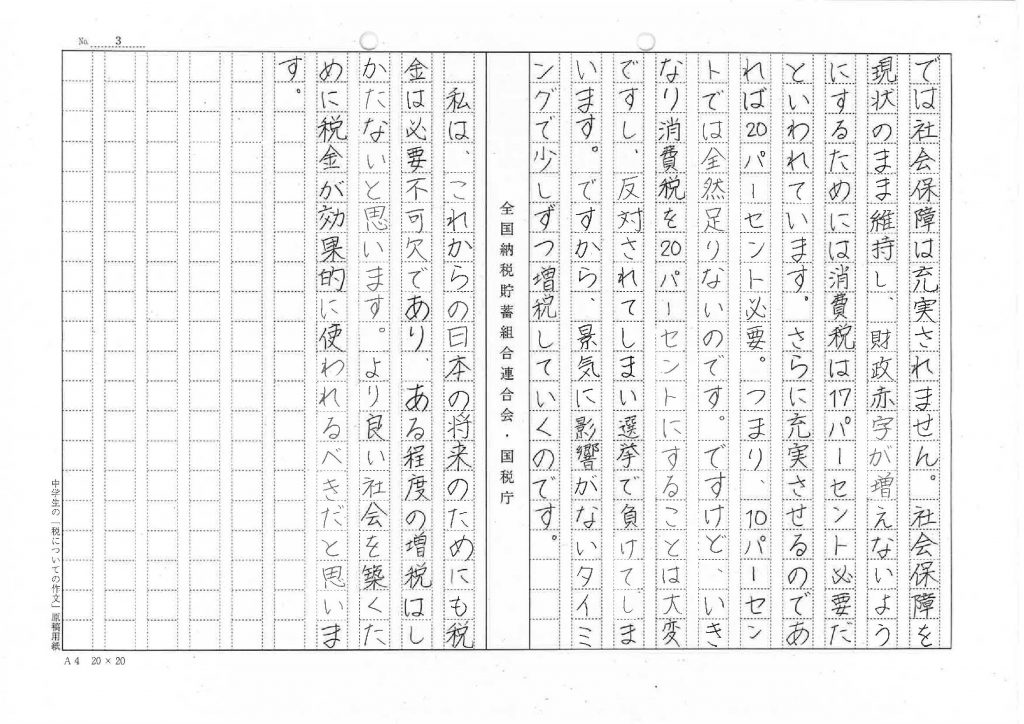 No. 3
では社会保障は充実されません。社会保障を
現状のまま維持し、財政赤字が増えないよう
にするためには消費税は17パーセント必要だ
といわれています。さらに充実させるのであ
れば20パーセント必要。つまり、10パーセン
トでは全然足りないのです。ですけど、いき
なり消費税を20パーセントにすることは大変
ですし、反対されてしまい選挙で負けてしま
います。ですから、景気に影響がないタイミ
ングで少しずつ増税していくのです。
全国納税貯蓄組合連合会・国税庁
私は、これからの日本の将来のためにも税
金は必要不可欠であり、ある程度の増税はし
かたないと思います。より良い社会を築くた
めに税金が効果的に使われるべきだと思いま
す。
中学生の「税についての作文」原稿用紙
A4 20×20